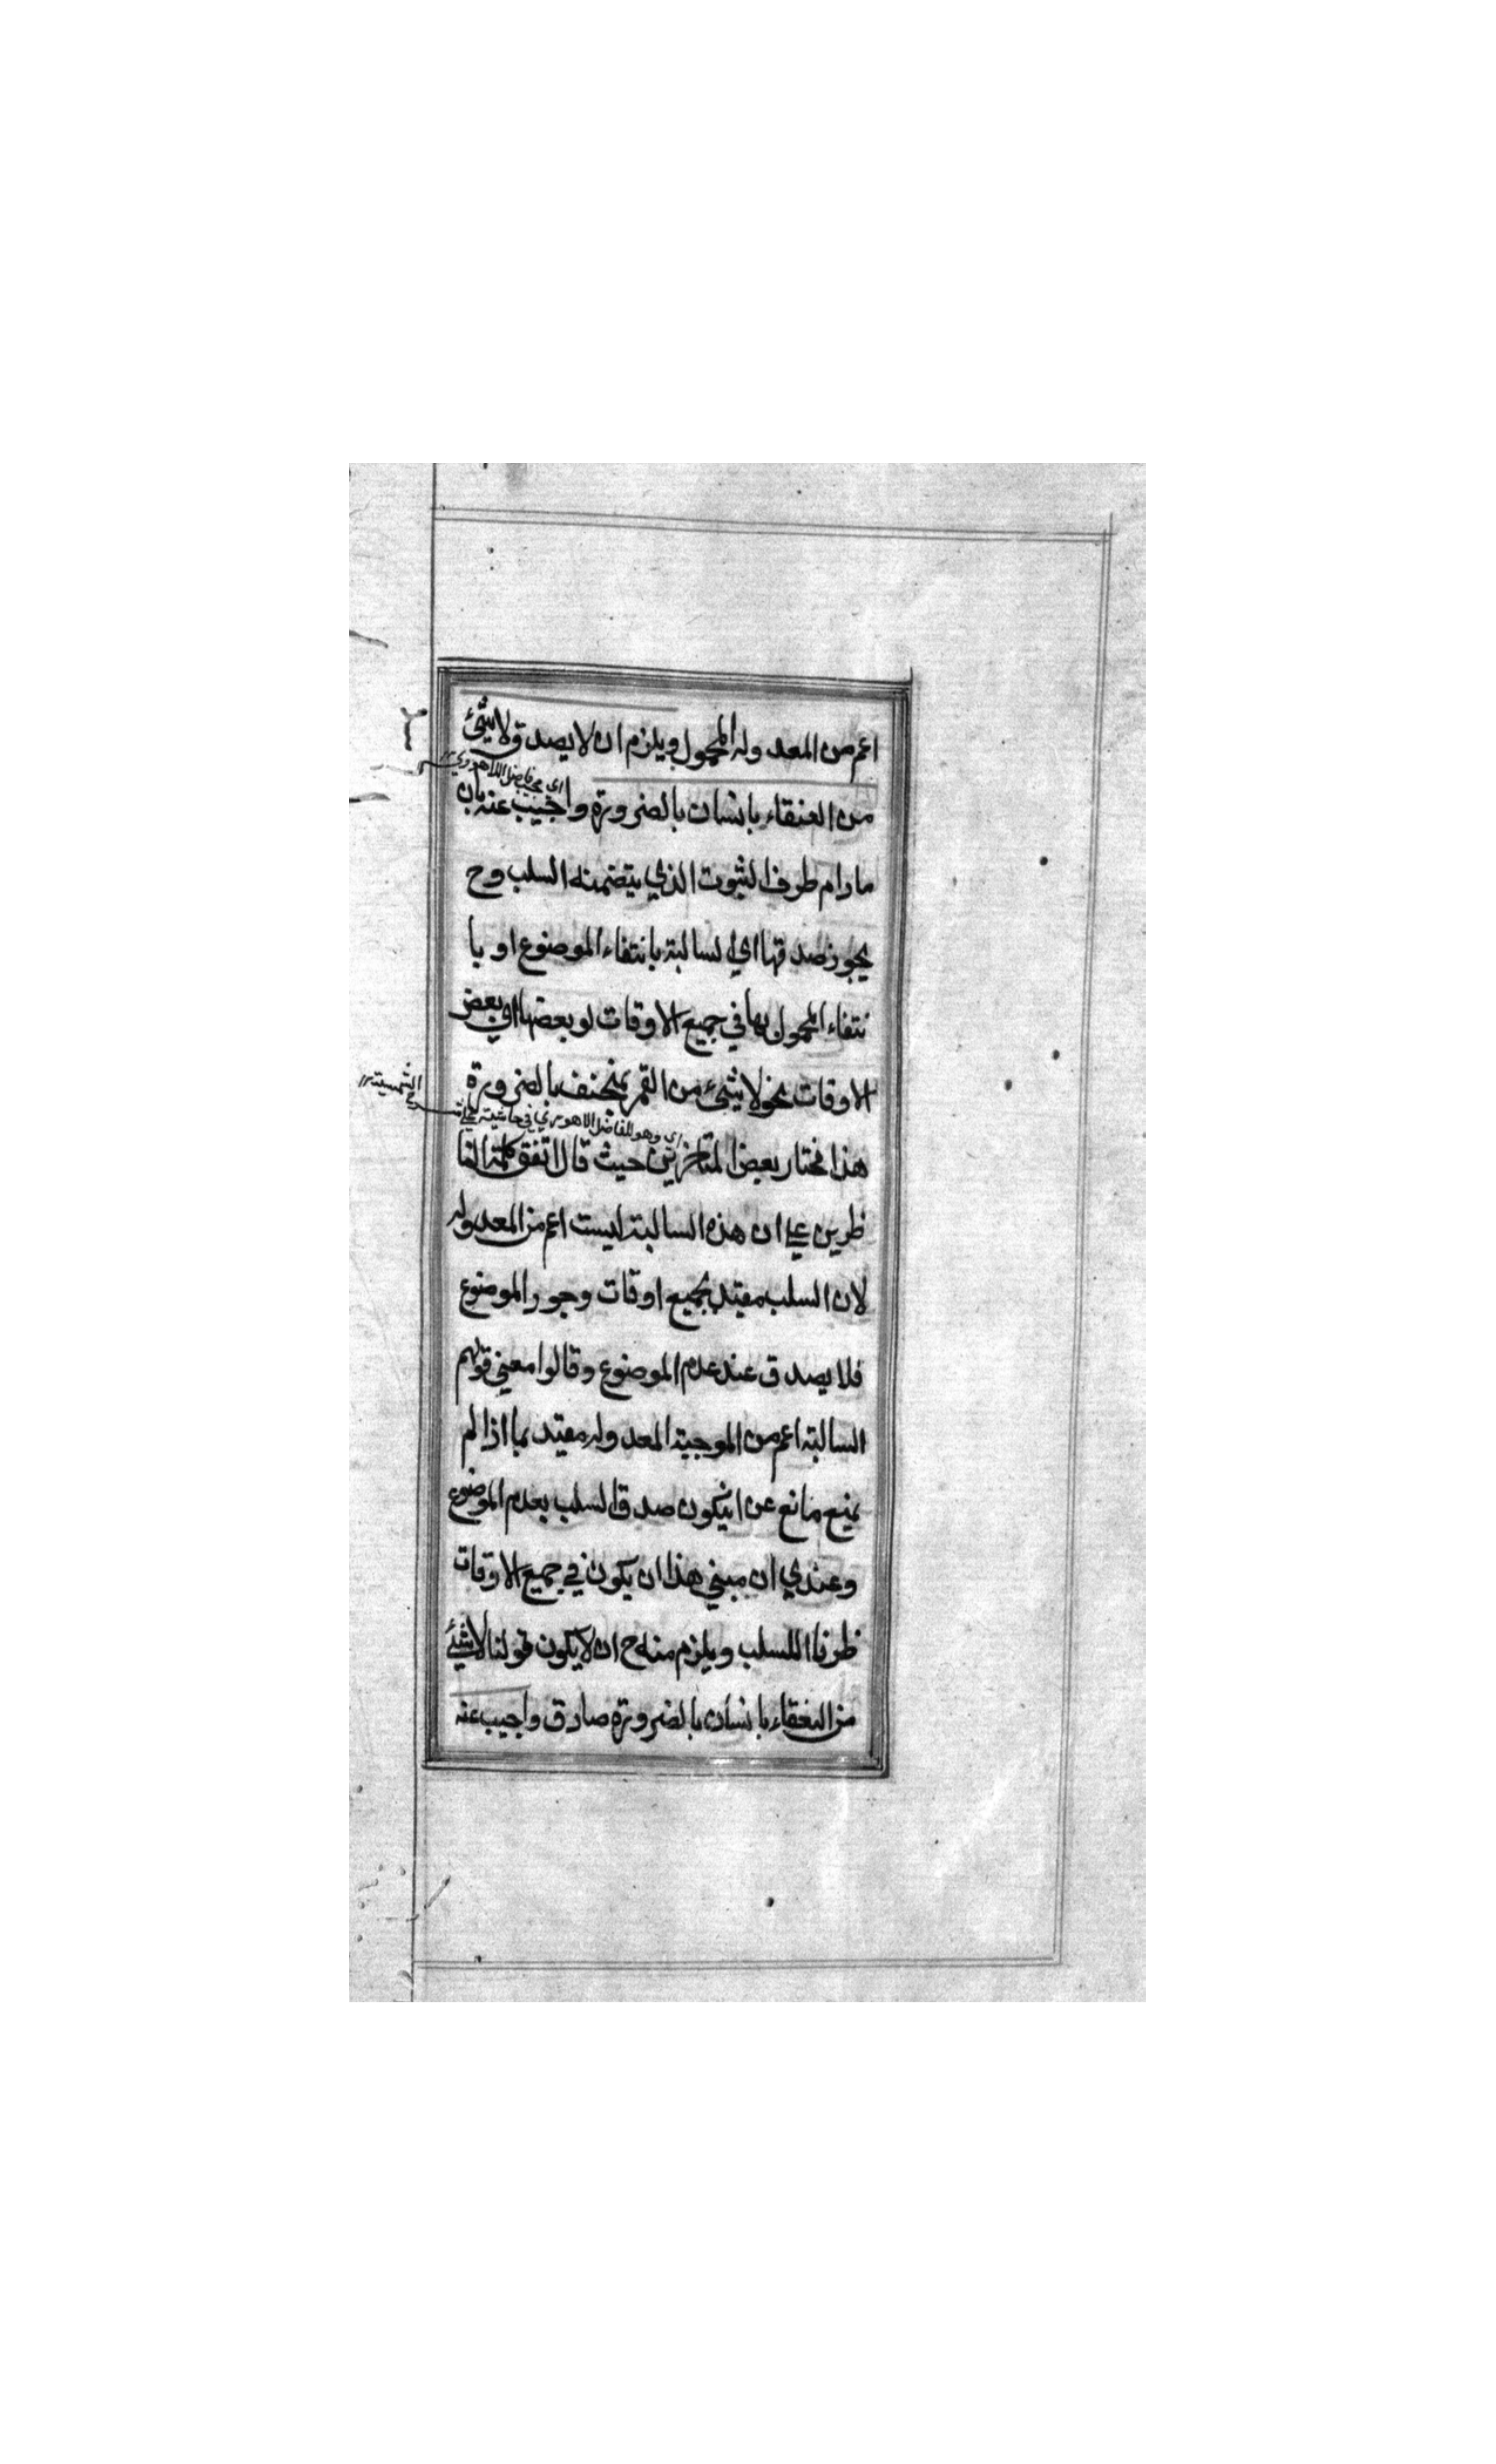 اعم من المعدوله المحمول ويلزم ان لا يصدق لاشئ
اي مجيب فاضل اللاهوري
من العنقاء بانسان بالضرورة واجيب عنه بان
مادام ظرف الثبوت الذي يتضمنه السلب وح
يجوز صدقها اي السالبة بانتفاء الموضوع او با
نتفاء المحمول بها في جميع الاوقات او بعضها اي بعض
الاوقات نحو لاشئ من القمر بمنخسف بالضرورة
اي وهو الفاضل الاهوري في حاشيته على شرح الشمسية
هذا مختار بعض المتاخرين حيث قال اتفق كلمة النا
ظرين على ان هذه السالبة ليست اعم من المعدوله
لان السلب مقيد بجميع اوقات وجود الموضوع
فلا يصدق عند عدم الموضوع وقالوا معني قولهم
السالبة اعم من الموجبة المعدوله مقيد بما اذا لم
يمنع مانع عن انيكون صدق السلب بعدم الموضوع
وعندي ان مبني هذا ان يكون في جميع الاوقات
ظرفا للسلب ويلزم منه ح ان لا يكون قولنا لاشئ
من العنقاء بانسان بالضرورة صادق واجيب عنه